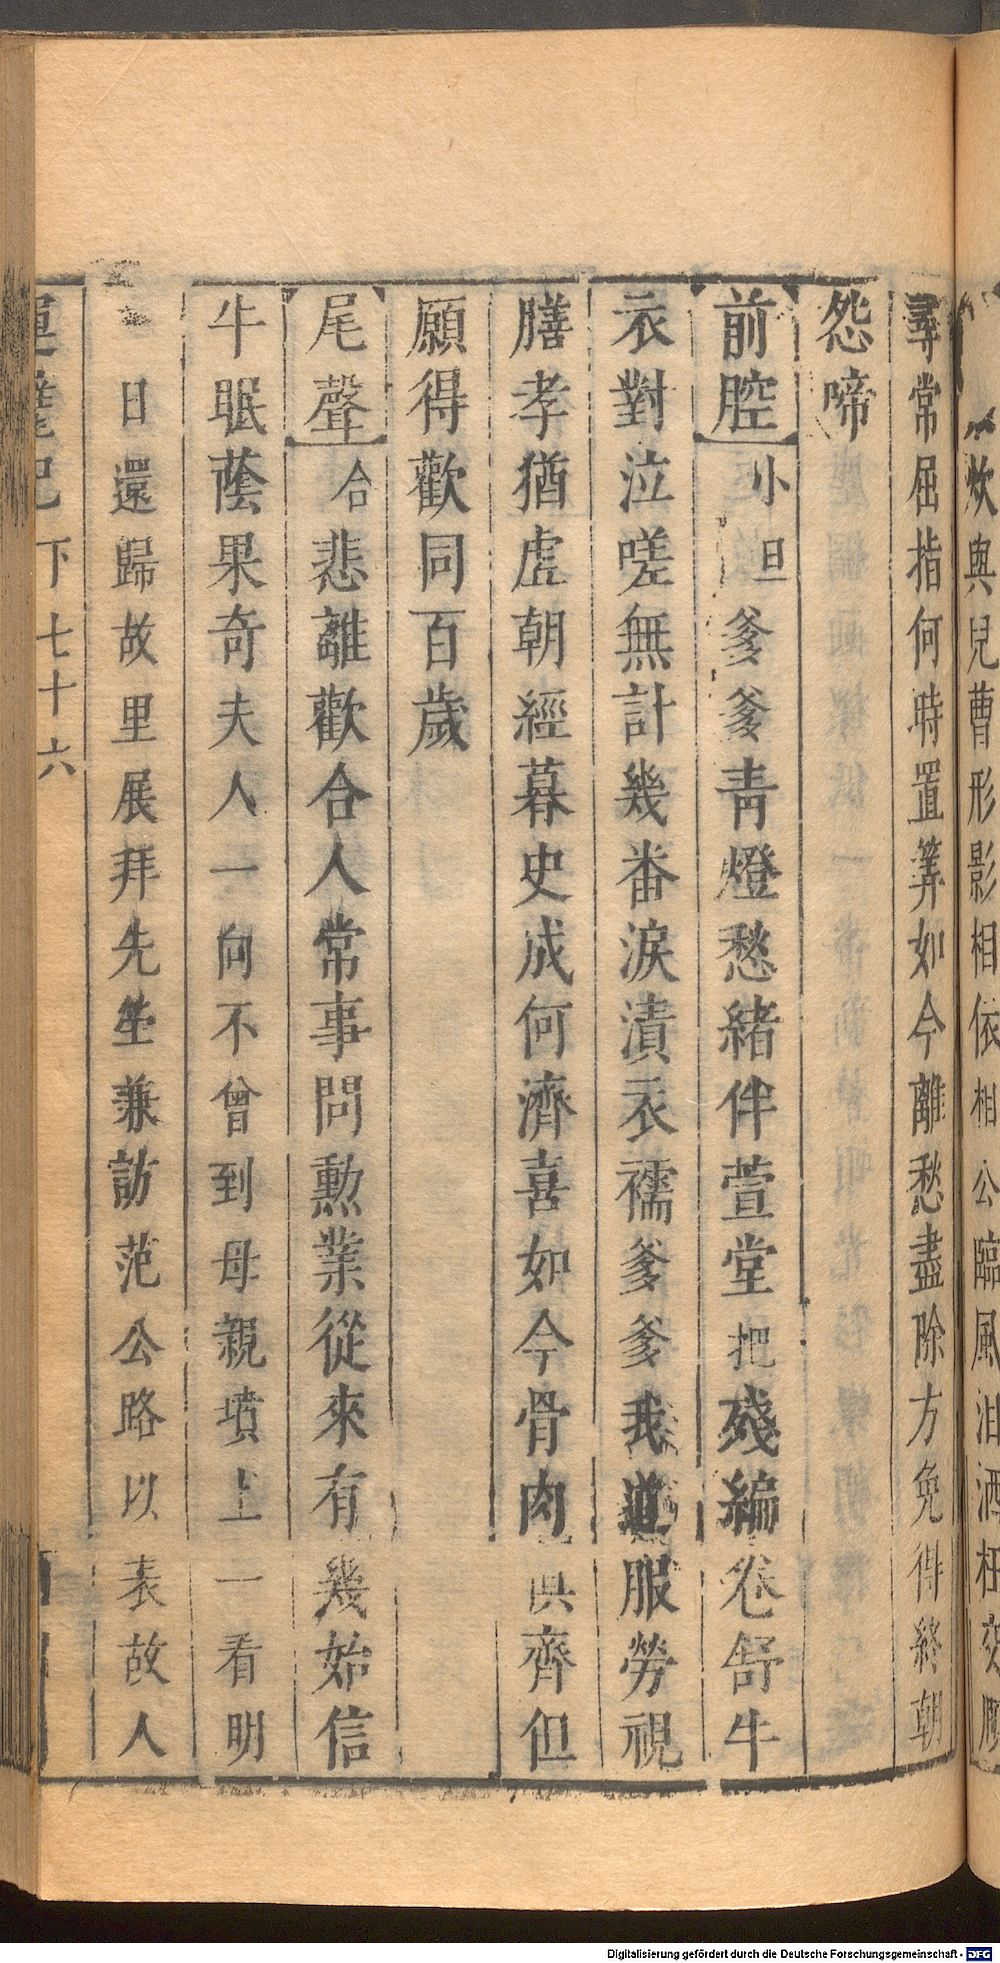 炊與兒曹形影相依相公臨風泪洒枉交
尋常屈指何時置筭如今離愁盡除方免得終朝
怨啼
前腔小旦爹爹青燈愁緒伴萱堂把殘編卷舒牛
衣對泣嗟無計幾番淚漬衣襦爹爹我道服勞視
膳孝猶虛朝經暮史成何濟喜如今骨肉俱齊但
願得歡同百歲
尾聲合悲離歡合人常事問勲業從來有幾始信
牛眠蔭果奇夫人一向不曾到母親墳上一看明
日還歸故里展拜先塋兼訪范公路以表故人
運甓記 下 七十六
Digitalisierung gefördert durch die Deutsche Forschungsgemeinschaft - DFG